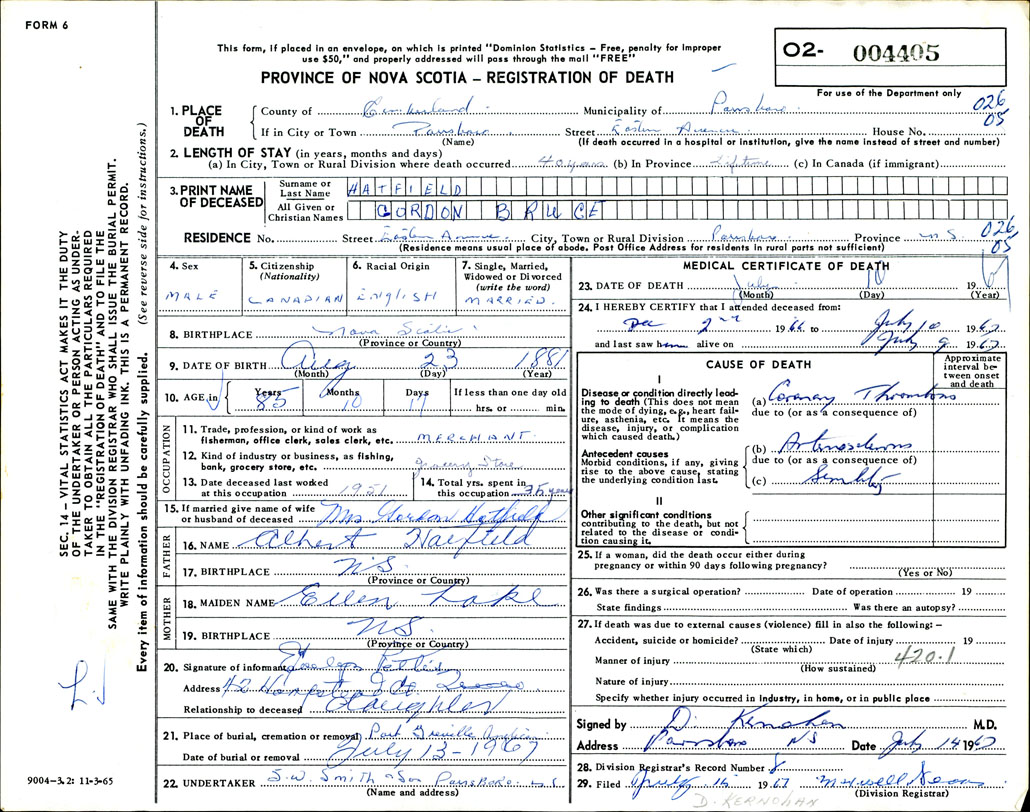 FORM 6
This form, if placed in an envelope, on which is printed "Dominion Statistics – Free, penalty for improper
use $50," and properly addressed will pass through the mail "FREE"
PROVINCE OF NOVA SCOTIA – REGISTRATION OF DEATH
O2- 004405
For use of the Department only
026
05
1. PLACE OF DEATH
County of Cumberland Municipality of Parrsboro
If in City or Town Parrsboro Street Eastern Avenue House No.
(Name) (If death occurred in a hospital or institution, give the name instead of street and number)
2. LENGTH OF STAY (in years, months and days)
(a) In City, Town or Rural Division where death occurred 40 years (b) In Province Lifetime (c) In Canada (if immigrant)
3. PRINT NAME OF DECEASED
Surname or Last Name HATFIELD
All Given or Christian Names GORDON BRUCE
RESIDENCE No. Street Eastern Avenue City, Town or Rural Division Parrsboro Province N.S.
026
05
(Residence means usual place of abode. Post Office Address for residents in rural parts not sufficient)
4. Sex
MALE
5. Citizenship
(Nationality)
CANADIAN
6. Racial Origin
ENGLISH
7. Single, Married,
Widowed or Divorced
(write the word)
MARRIED.
8. BIRTHPLACE Nova Scotia
(Province or Country)
9. DATE OF BIRTH Aug 23 1881
(Month) (Day) (Year)
10. AGE in Years Months Days If less than one day old
85 10 17 hrs. or min.
OCCUPATION
11. Trade, profession, or kind of work as
fisherman, office clerk, sales clerk, etc. MERCHANT.
12. Kind of industry or business, as fishing,
bank, grocery store, etc. Grocery Store
13. Date deceased last worked
at this occupation 1951
14. Total yrs. spent in
this occupation 35 years
15. If married give name of wife
or husband of deceased Mrs Gordon Hatfield
FATHER
16. NAME Albert Hatfield
17. BIRTHPLACE N.S.
(Province or Country)
MOTHER
18. MAIDEN NAME Ellen Lake
19. BIRTHPLACE N.S.
(Province or Country)
20. Signature of informant
Address 42
Relationship to deceased Daughter
21. Place of burial, cremation or removal Port Greville
Date of burial or removal July 13 - 1967
22. UNDERTAKER S.W. Smith & Son Parrsboro N.S.
(Name and address)
MEDICAL CERTIFICATE OF DEATH
23. DATE OF DEATH July 10 19 6
(Month) (Day) (Year)
24. I HEREBY CERTIFY that I attended deceased from:
Dec 2nd 1966 to July 10 1967
and last saw him alive on July 9 1967
CAUSE OF DEATH
Approximate
interval be-
tween onset
and death
I
Disease or condition directly lead-
ing to death (This does not mean
the mode of dying, e.g., heart fail-
ure, asthenia, etc. It means the
disease, injury, or complication
which caused death.)
(a) Coronary Thrombosis
due to (or as a consequence of)
Antecedent causes
Morbid conditions, if any, giving
rise to the above cause, stating
the underlying condition last.
(b) Arteriosclerosis
due to (or as a consequence of)
(c) Senility
II
Other significant conditions
contributing to the death, but not
related to the disease or condi-
tion causing it.
25. If a woman, did the death occur either during
pregnancy or within 90 days following pregnancy?
(Yes or No)
26. Was there a surgical operation? Date of operation 19
State findings Was there an autopsy?
27. If death was due to external causes (violence) fill in also the following: –
Accident, suicide or homicide? Date of injury 19
(State which)
Manner of injury 420.1
(How sustained)
Nature of injury
Specify whether injury occurred in industry, in home, or in public place
Signed by D. Kernohan M.D.
Address Parrsboro N.S. Date July 14 1967
28. Division Registrar's Record Number 8
29. Filed July 14 1967
(Division Registrar)
D. KERNOHAN
SEC. 14 – VITAL STATISTICS ACT MAKES IT THE DUTY
OF THE UNDERTAKER OR PERSON ACTING AS UNDER-
TAKER TO OBTAIN ALL THE PARTICULARS REQUIRED
IN THE "REGISTRATION OF DEATH" AND TO FILE THE
SAME WITH THE DIVISION REGISTRAR WHO SHALL ISSUE THE BURIAL PERMIT.
WRITE PLAINLY WITH UNFADING INK. THIS IS A PERMANENT RECORD.
Every item of information should be carefully supplied. (See reverse side for instructions.)
9004-3.2: 11-3-65